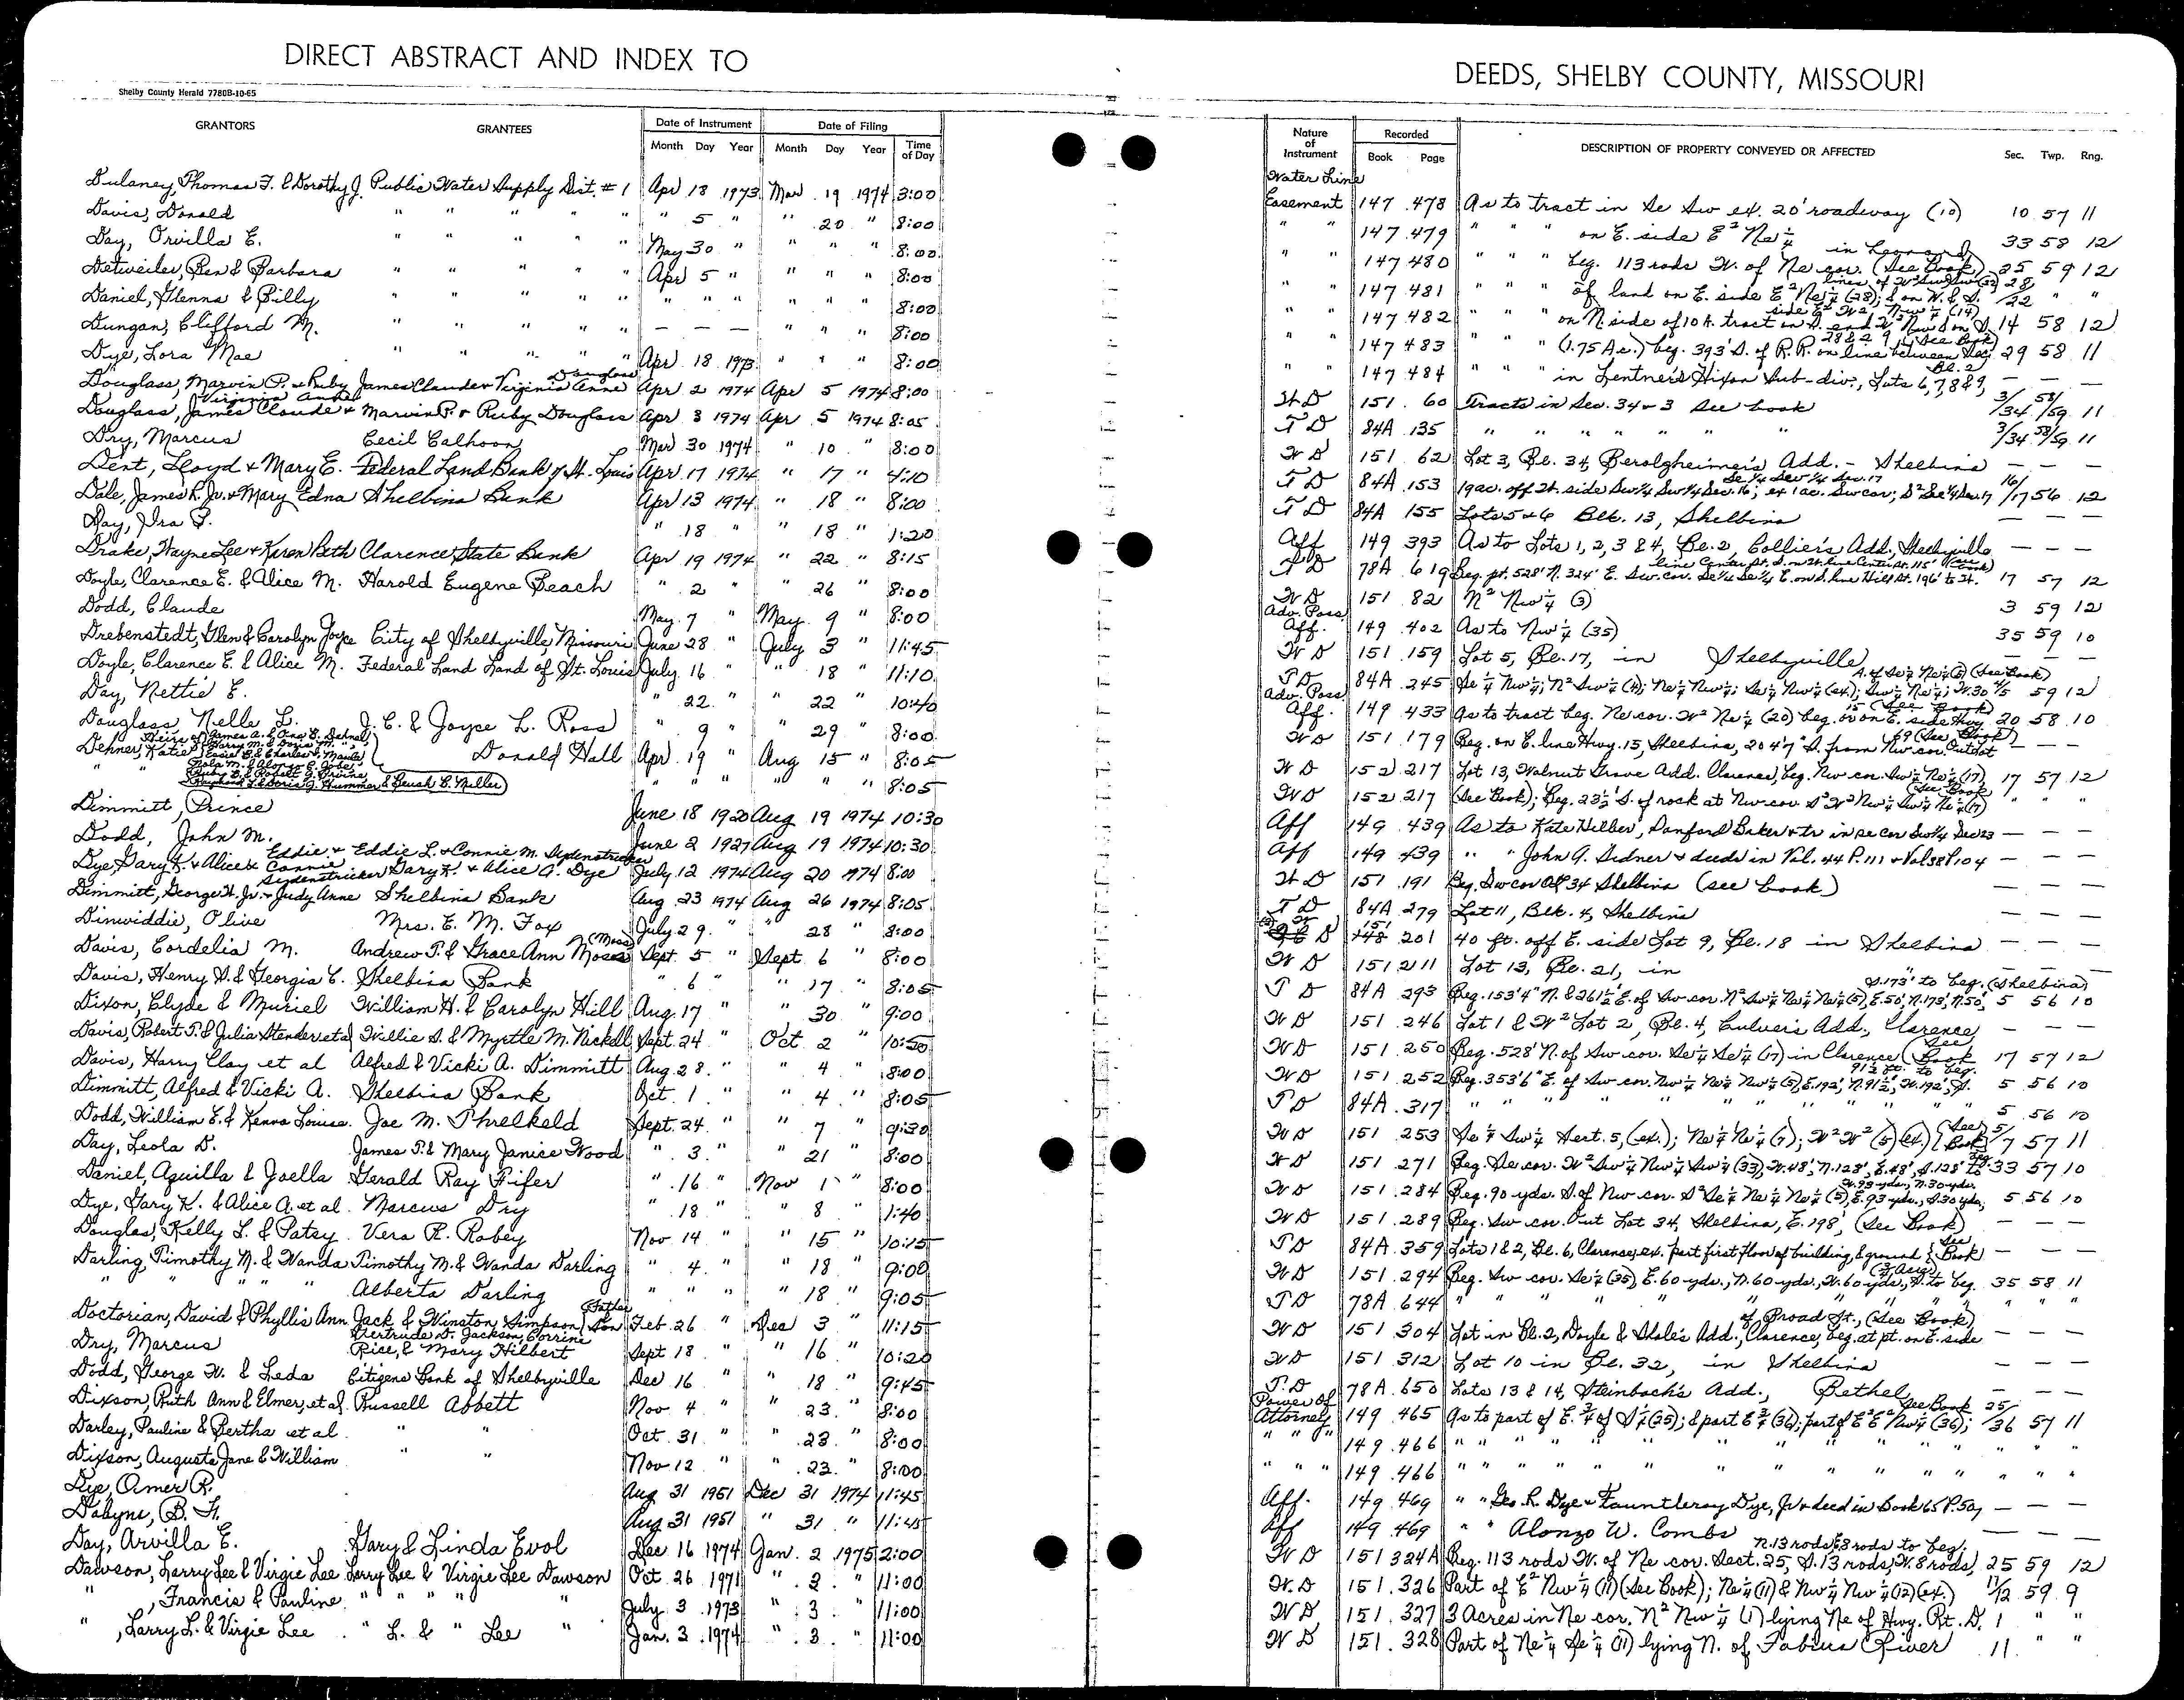 DIRECT ABSTRACT AND INDEX TO
Shelby County Herald 7780B-10-65
GRANTORS GRANTEES Date of Instrument Date of Filing
Month Day Year Month Day Year Time of Day
Dulaney, Thomas F. & Dorothy J. Public Water Supply Dist. #1 Apr 18 1973 Mar 19 1974 3:00
Davis, Donald " " " " " 5 " " 20 " 8:00
Day, Orvilla E. " " " " May 30 " " " " 8:00
Detweiler, Ben & Barbara " " " " Apr 5 " " " " 8:00
Daniel, Glenna & Billy " " " " " " " " " " 8:00
Dungan, Clifford M. " " " " — — — " " " 8:00
Dye, Lora Mae " " " " Apr 18 1973 " " " 8:00
Douglass, Marvin P. & Ruby James Claude & Virginia Anne Douglass Apr 2 1974 Apr 5 1974 8:00
Douglass, James Claude & Virginia Anne Marvin P. & Ruby Douglass Apr 3 1974 Apr 5 1974 8:05
Dry, Marcus Cecil Calhoon Mar 30 1974 " 10 " 8:00
Dent, Lloyd & Mary E. Federal Land Bank of St. Louis Apr 17 1974 " 17 " 4:10
Dale, James R. Jr. & Mary Edna Shelbina Bank Apr 13 1974 " 18 " 8:00
Day, Ira F. " 18 " " 18 " 1:20
Drake, Wayne Lee & Karen Beth Clarence State Bank Apr 19 1974 " 22 " 8:15
Doyle, Clarence E. & Alice M. Harold Eugene Beach " 2 " " 26 " 8:00
Dodd, Claude May 7 " May 9 " 8:00
Drebenstedt, Glen & Carolyn Joyce City of Shelbyville, Missouri June 28 " July 3 " 11:45
Doyle, Clarence E. & Alice M. Federal Land Land of St. Louis July 16 " " 18 " 11:10
Day, Nettie E. " 22 " " 22 " 10:40
Douglass, Nelle L. J. C. & Joyce L. Ross " 9 " " 29 " 8:00
Dehner, Katie Heirs of Donald Hall Apr 19 " Aug 15 " 8:05
" " " " " " " " 8:05
Raymond L. & Doris J. Hummer & Beulah B. Miller
Dimmitt, Prince June 18 1920 Aug 19 1974 10:30
Dodd, John M. June 2 1927 Aug 19 1974 10:30
Dye, Gary K. & Alice & Eddie & Connie Sydenstricker Eddie L. & Connie M. Sydenstricker Gary K. & Alice A. Dye July 12 1974 Aug 20 1974 8:00
Dimmitt, George H. Jr. & Judy Anne Shelbina Bank Aug 23 1974 Aug 26 1974 8:05
Dinwiddie, Olive Mrs. E. M. Fox July 29 " " 28 " 8:00
Davis, Cordelia M. Andrew T. & Grace Ann Moss (Moss) Sept. 5 " Sept. 6 " 8:00
Davis, Henry S. & Georgia C. Shelbina Bank " 6 " " 17 " 8:05
Dixon, Clyde & Muriel William H. & Carolyn Hill Aug 17 " " 30 " 9:00
Davis, Robert T. & Julia Stander et al Willie S. & Myrtle M. Nickell Sept. 24 " Oct. 2 " 10:20
Davis, Harry Clay et al Alfred & Vicki A. Dimmitt Aug. 28 " " 4 " 8:00
Dimmitt, Alfred & Vicki A. Shelbina Bank Oct. 1 " " 4 " 8:05
Dodd, William E. & Kenna Louise Joe M. Threlkeld Sept. 24 " " 7 " 9:30
Day, Leola D. James T. & Mary Janice Wood " 3 " " 21 " 8:00
Daniel, Aquilla & Joella Gerald Ray Fifer " 16 " Nov 1 " 8:00
Dye, Gary K. & Alice A. et al Marcus Dry " 18 " " 8 " 1:40
Douglas, Kelly L. & Patsy Vera R. Robey Nov 14 " " 15 " 10:15
Darling Timothy M. & Wanda Timothy M. & Wanda Darling " 4 " " 18 " 9:00
" " " " " Alberta Darling " " " " 18 " 9:05
Doctorian, David & Phyllis Ann Jack & Winston Simpson, Father Son Feb. 26 " Dec 3 " 11:15
Dry, Marcus Gertrude D. Jackson, Corrine Rice, & Mary Hilbert Sept 18 " " 16 " 10:20
Dodd, George W. & Leda Citizens Bank of Shelbyville Dec 16 " " 18 " 9:45
Dixson, Ruth Ann & Elmer, et al Russell Abbett Nov 4 " " 23 " 8:00
Darley, Pauline & Bertha et al " " Oct. 31 " " 23 " 8:00
Dixson, Augusta Jane & William " " Nov 12 " " 23 " 8:00
Dye, Omer R. Aug 31 1951 Dec 31 1974 11:45
Dabyne, B. H. Aug 31 1951 " 31 " 11:45
Day, Arvilla E. Gary & Linda Evol Dec 16 1974 Jan. 2 1975 2:00
Dawson, Larry Lee & Virgie Lee Larry Lee & Virgie Lee Dawson Oct. 26 1971 " 3 " 11:00
" , Francis & Pauline " " " " " July 3 1973 " 3 " 11:00
" , Larry L. & Virgie Lee " L. & " Lee " Jan. 3 1974 " 3 " 11:00
DEEDS, SHELBY COUNTY, MISSOURI
Nature of Instrument Recorded DESCRIPTION OF PROPERTY CONVEYED OR AFFECTED Sec. Twp. Rng.
Book Page
Water Line
Easement 147 478 As to tract in Se Sw ex. 20' roadway (10) 10 57 11
" " 147 479 " " " on E. side E² Ne¼ 33 58 12
" " 147 480 " " " beg. 113 rods W. of Ne cor. in Leonard (See Book) 25 59 12
" " 147 481 " " " of land on E. side E² Ne¼ (28); & on W. & S. lines of 28/22 " "
" " 147 482 " " " on N. side of 10 A. tract 14 58 12
" " 147 483 " " " (1.75 Ac.) beg. 393' S. of R.R. on line between Sec. 28 & 29, (See Book) 29 58 11
" " 147 484 " " " in Lentner's Hixon Sub-div., Lots 6, 7, 8 & 9, Bl. 2 — — —
W D 151 60 Tracts in Sec. 34 & 3 See book 3/34 58/59 11
T D 84A 135 " " " " " " " 3/34 58/59 11
W D 151 62 Lot 3, Bl. 34, Berolgheimer's Add. - Shelbina — — —
T D 84A 153 19 ac. off W. side Sw¼ Sw¼ Sec. 16; ex 1 ac. Sw cor; S² Se¼ Sec. 17 Se ¼ Sw ¼ Sec. 17 16/17 56 12
T D 84A 155 Lots 5 & 6 Blk. 13, Shelbina — — —
Aff 149 393 As to Lots 1, 2, 3 & 4, Bl. 2, Collier's Add., Shelbyville — — —
T D 78A 619 Beg. pt. 528' N. 324' E. Sw. cor. Se¼ Se¼ E. on S. line Hill St. 196' to W. line Center St. S. on W. line Center St. 115' 17 57 12
W D 151 82 N² Nw¼ (3) 3 59 12
Adv. Poss. Aff. 149 402 As to Nw¼ (35) 35 59 10
W D 151 159 Lot 5, Bl. 17, in Shelbyville — — —
T D 84A 245 Se¼ Nw¼; N² Sw¼ (4); Ne¼ Nw¼; Se¼ Nw¼ (ex.); Sw¼ Ne¼; W. 30 A. of Se¼ Ne¼ (5) (See Book) 4/5 59 12
Adv. Poss. Aff. 149 433 As to tract beg. Ne cor. W² Ne¼ (20) beg. on E. side Hwy. 15 (See Book) 20 58 10
W D 151 179 Beg. on E. line Hwy. 15, Shelbina, 204'7" S. from Nw cor. Outlot 59 (See Book) — — —
W D 152 217 Lot 13, Walnut Grove Add. Clarence; beg. Nw cor. Sw¼ Ne¼ (17) (See Book 17 57 12
W D 152 217 (See Book); Beg. 23½' S. of rock at Nw cor S² W² Nw¼ Sw¼ Ne¼ (17) " " "
Aff 149 439 As to Kate Hilber, Danford Baker & tr in se cor Sw¼ Sec 23 — — —
Aff 149 439 " " John A. Sidner & deeds in Vol. 44 P. 111 & Vol 38 P. 104 — — —
W D 151 191 Beg. Sw cor OL 34 Shelbina (see book) — — —
T D 84A 279 Lot 11, Blk. 4, Shelbina — — —
W D 151 201 40 ft. off E. side Lot 9, Bl. 18 in Shelbina — — —
W D 151 211 Lot 13, Bl. 21, in — — —
T D 84A 293 Beg. 153'4" N. & 261½' E. of Sw cor. N² Sw¼ Ne¼ Ne¼ (5), E. 50', N. 173', W. 50', S. 173' to beg. (Shelbina) 5 56 10
W D 151 246 Lot 1 & W² Lot 2, Bl. 4, Culver's Add., Clarence — — —
W D 151 250 Beg. 528' N. of Sw cor. Se¼ Se¼ (17) in Clarence (See Book 17 57 12
W D 151 252 Beg. 353'6" E. of Sw cor. Nw¼ Ne¼ Nw¼ (5), E. 192', N. 91½', W. 192', S. 91½ ft. to beg. 5 56 10
T D 84A 317 " " " " " " " " " 5 56 10
W D 151 253 Se¼ Sw¼ Sect. 5, (ex.); Ne¼ Ne¼ (7); W² W² (5) (ex.) (See Book) 5/7 57 11
W D 151 271 Beg. Se cor. W² Sw¼ Nw¼ Sw¼ (33), W. 48', N. 128', E. 48', S. 128' to beg. 33 57 10
W D 151 284 Beg. 90 yds. S. of Nw cor. S² Se¼ Ne¼ Ne¼ (5), E. 93 yds., S. 30 yds., W. 93 yds., N. 30 yds. 5 56 10
W D 151 289 Beg. Sw cor. Out Lot 34, Shelbina, E. 198', (See Book) — — —
T D 84A 359 Lots 1 & 2, Bl. 6, Clarence, ex. part first floor of building, & ground (See Book — — —
W D 151 294 Beg. Sw cor. Se¼ (35), E. 60 yds., N. 60 yds., W. 60 yds., S. to beg. (¾ Acre) 35 58 11
T D 78A 644 " " " " " " " " " " "
W D 151 304 Lot in Bl. 2, Doyle & Shale's Add., Clarence, beg. at pt. on E. side of Broad St., (See Book) — — —
W D 151 312 Lot 10 in Bl. 32, in Shelbina — — —
T. D 78A 650 Lots 13 & 14, Steinbach's Add., Bethel — — —
Power of Attorney 149 465 As to part of E. ¾ of S½ (25); & part E¾ (36); part of E² E² Nw¼ (36); See Book 25/36 57 11
" " " 149 466 " " " " " " " " " " "
" " " 149 466 " " " " " " " " " " "
Aff. 149 469 " " Geo. R. Dye & Fauntleroy Dye, Jr & deed in Book 65 P. 50, — — —
Aff 149 469 " " Alonzo W. Combs — — —
W D 151 324A Beg. 113 rods W. of Ne cor. Sect. 25, S. 13 rods, W. 8 rods, N. 13 rods E. 8 rods to beg. 25 59 12
W. D 151 326 Part of E² Nw¼ (11) (See Book); Ne¼ (11) & Nw¼ Nw¼ (12) (ex.) 11/12 59 9
W D 151 327 3 Acres in Ne cor. N² Nw¼ (1) lying Ne of Hwy. Rt. D. 1 " "
W D 151 328 Part of Ne¼ Se¼ (11) lying N. of Fabius River 11 " "